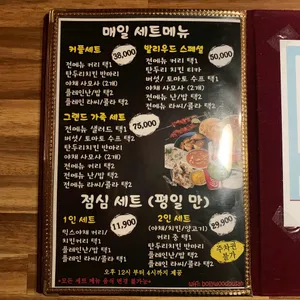 매일 세트메뉴
커플세트 38,000
전메뉴 커리 택1
탄두리치킨 반마리
야채 사모사 (2개)
플레인난/밥 택2
플레인 라씨/콜라 택2
발리우드 스페셜 50,000
전메뉴 커리 택2
탄두리 치킨 티카
버섯/ 토마토 수프 택1
야채 사모사 (2개)
전메뉴 난/밥 택2
플레인 라씨/콜라 택2
그랜드 가족 세트 75,000
전메뉴 샐러드 택1
버섯/ 토마토 수프 택
탄두리치킨 한마리
야채 사모사 (2개)
전메뉴 커리 택2
전메뉴 난/밥 택3
플레인 라씨/콜라 택
점심 세트 (평일 만)
1인 세트 11,900
믹스야채 커리/
치킨커리 택1
플레인난/밥 택1
플레인라씨/콜라 택1
2인 세트 29,900
(야채/치킨/양고기)
커리 중 택1
탄두리치킨 반마리
플레인난/밥 택2
플레인라씨/콜라 택2
주차권
불가
오후 12시 부터 4시까지 제공
*모든 세트 메뉴 음식 변경 불가능*